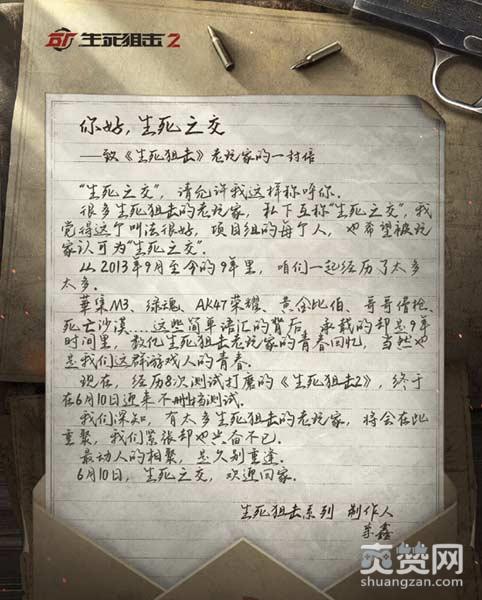 生死狙击2
你好，生死之交
——致《生死狙击》老玩家的一封信
“生死之交”，请允许我这样称呼你．
很多生死狙击的老玩家，私下互称“生死之交”，我
觉得这个叫法很好，项目组的每个人，也希望被玩
家认可为“生死之交”．
从2013年9月至今的9年里，咱们一起经历了太多
太多．
苹果M3、绿魂、AK47荣耀、黄金比伯、哥哥借枪、
死亡沙漠……这些简单语汇的背后，承载的却是9年
时间里，数亿生死狙击老玩家的青春回忆，当然也
是我们这群游戏人的青春．
现在，经历8次测试打磨的《生死狙击2》，终于
在6月10日迎来不删档测试．
我们深知，有太多生死狙击的老玩家，将会在此
重聚，我们紧张却也兴奋不已．
最动人的相聚，是久别重逢．
6月10日，生死之交，欢迎回家．
生死狙击系列 制作人
鑫
爽赞网
shuangzan.com